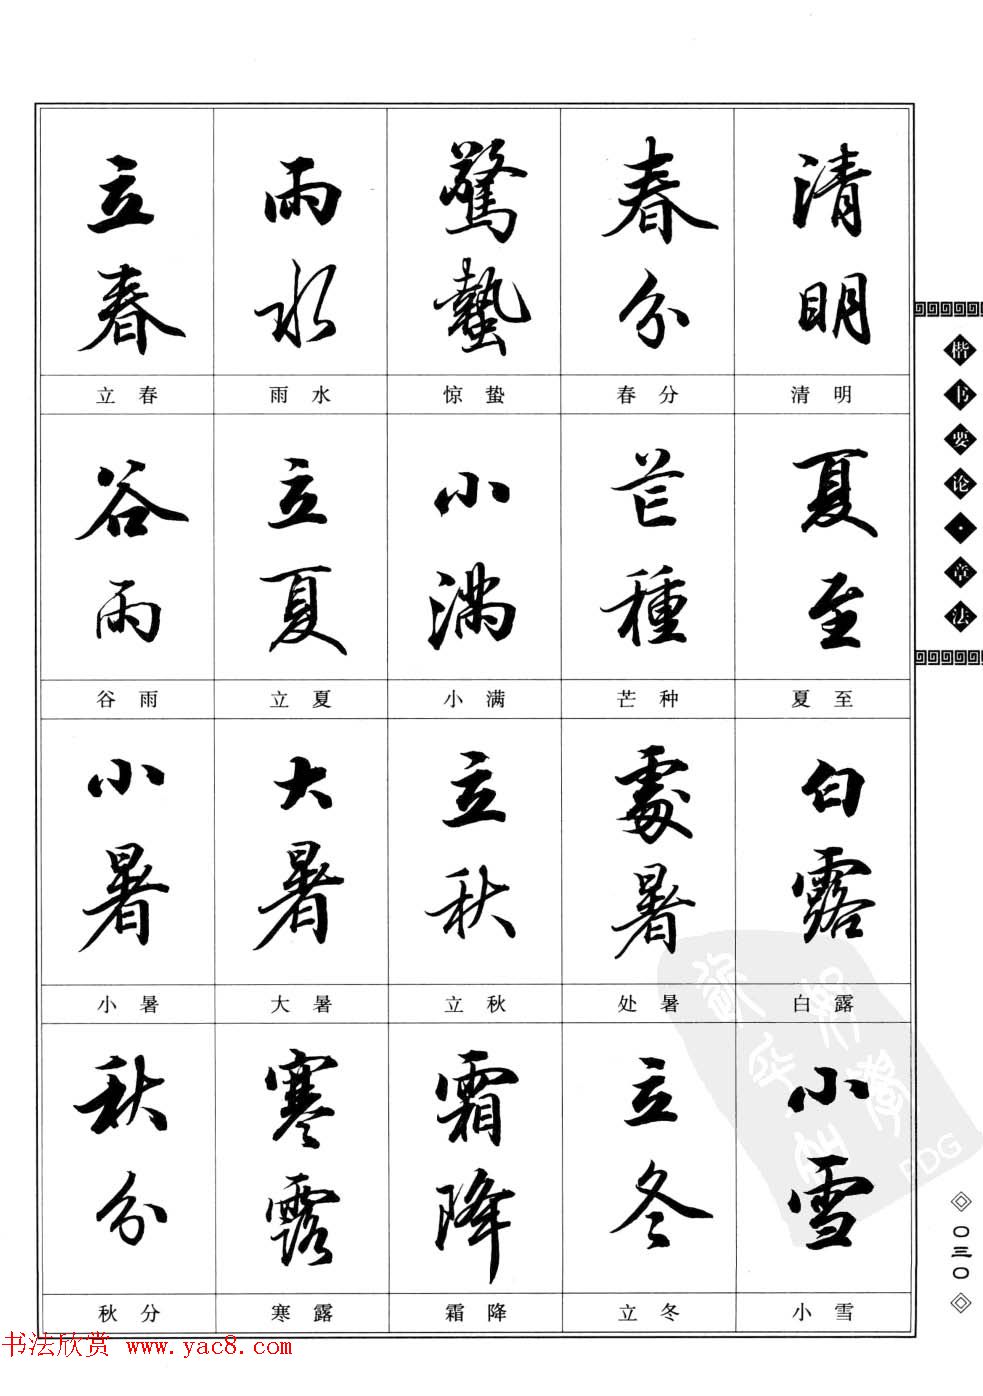 立春 雨水 驚蟄 春分 清明
立春 雨水 惊蛰 春分 清明
谷雨 立夏 小满 芒種 夏至
谷雨 立夏 小满 芒种 夏至
小暑 大暑 立秋 處暑 白露
小暑 大暑 立秋 处暑 白露
秋分 寒露 霜降 立冬 小雪
秋分 寒露 霜降 立冬 小雪
楷书要论·章法
〇三〇
PDG
书法欣赏 www.yac8.com